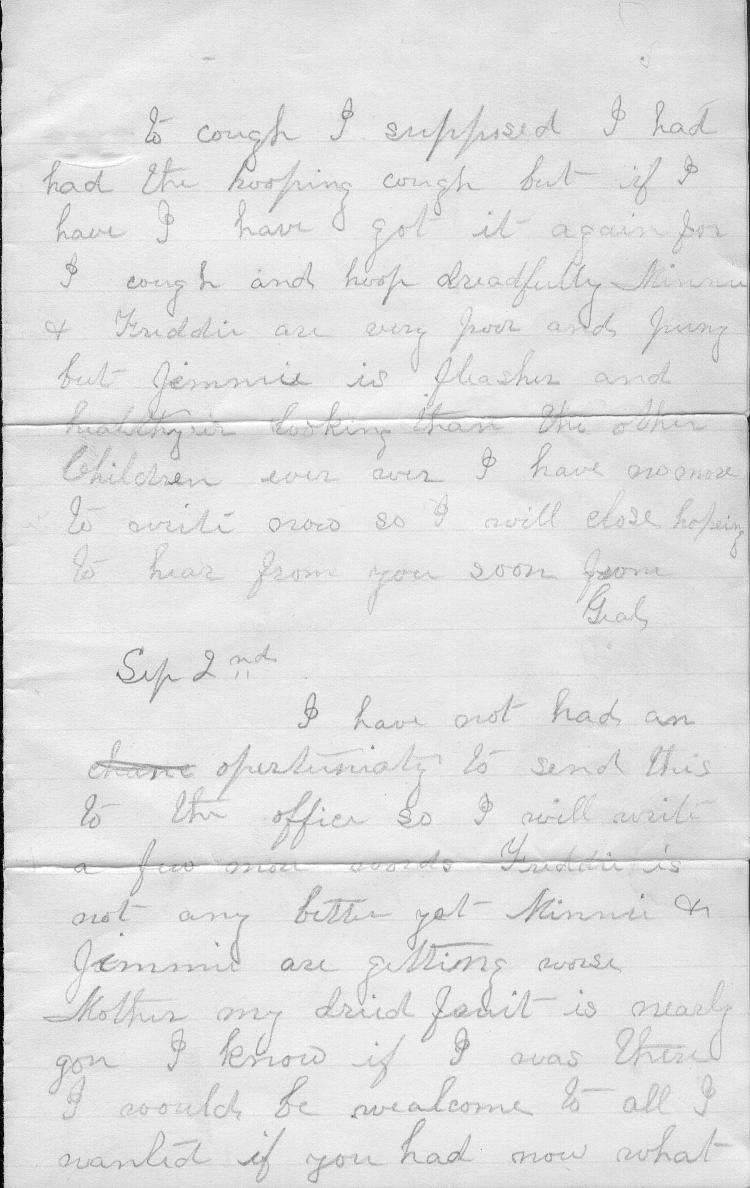 to cough I supposed I had
had the hooping cough but if I
have I have got it again for
I cough and hoop dreadfully Minnie
& Freddie are very poor and puny
but Jimmie is fleasher and
healthyer looking than the other
Children ever wer I have no more
to write now so I will close hopeing
to hear from you soon from
Sep 2nd
I have not had an
chanc opertuniaty to send this
to the office so I will write
a few more words Freddie is
not any better yet Minnie &
Jimmie are getting worse
Mother my dried fruit is nearly
gon I know if I was there
I would be wealcome to all I
wanted if you had now what